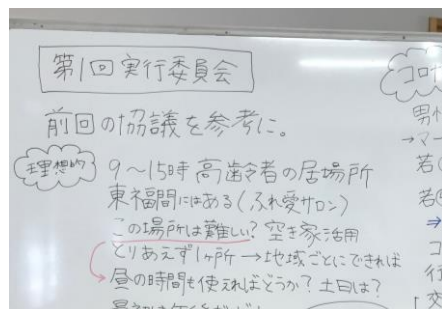 第1回実行委員会
前回の協議を参考に。
理想的
9〜15時 高齢者の居場所
東福間にはある(ふれ愛サロン)
この場所は難しい? 空き家活用
とりあえず1ヶ所 → 地域ごとにできれば
昼の時間も使えればどうか? 土日は?
コロナ
男性
→マー
若
若
⇒
コ
行
「交